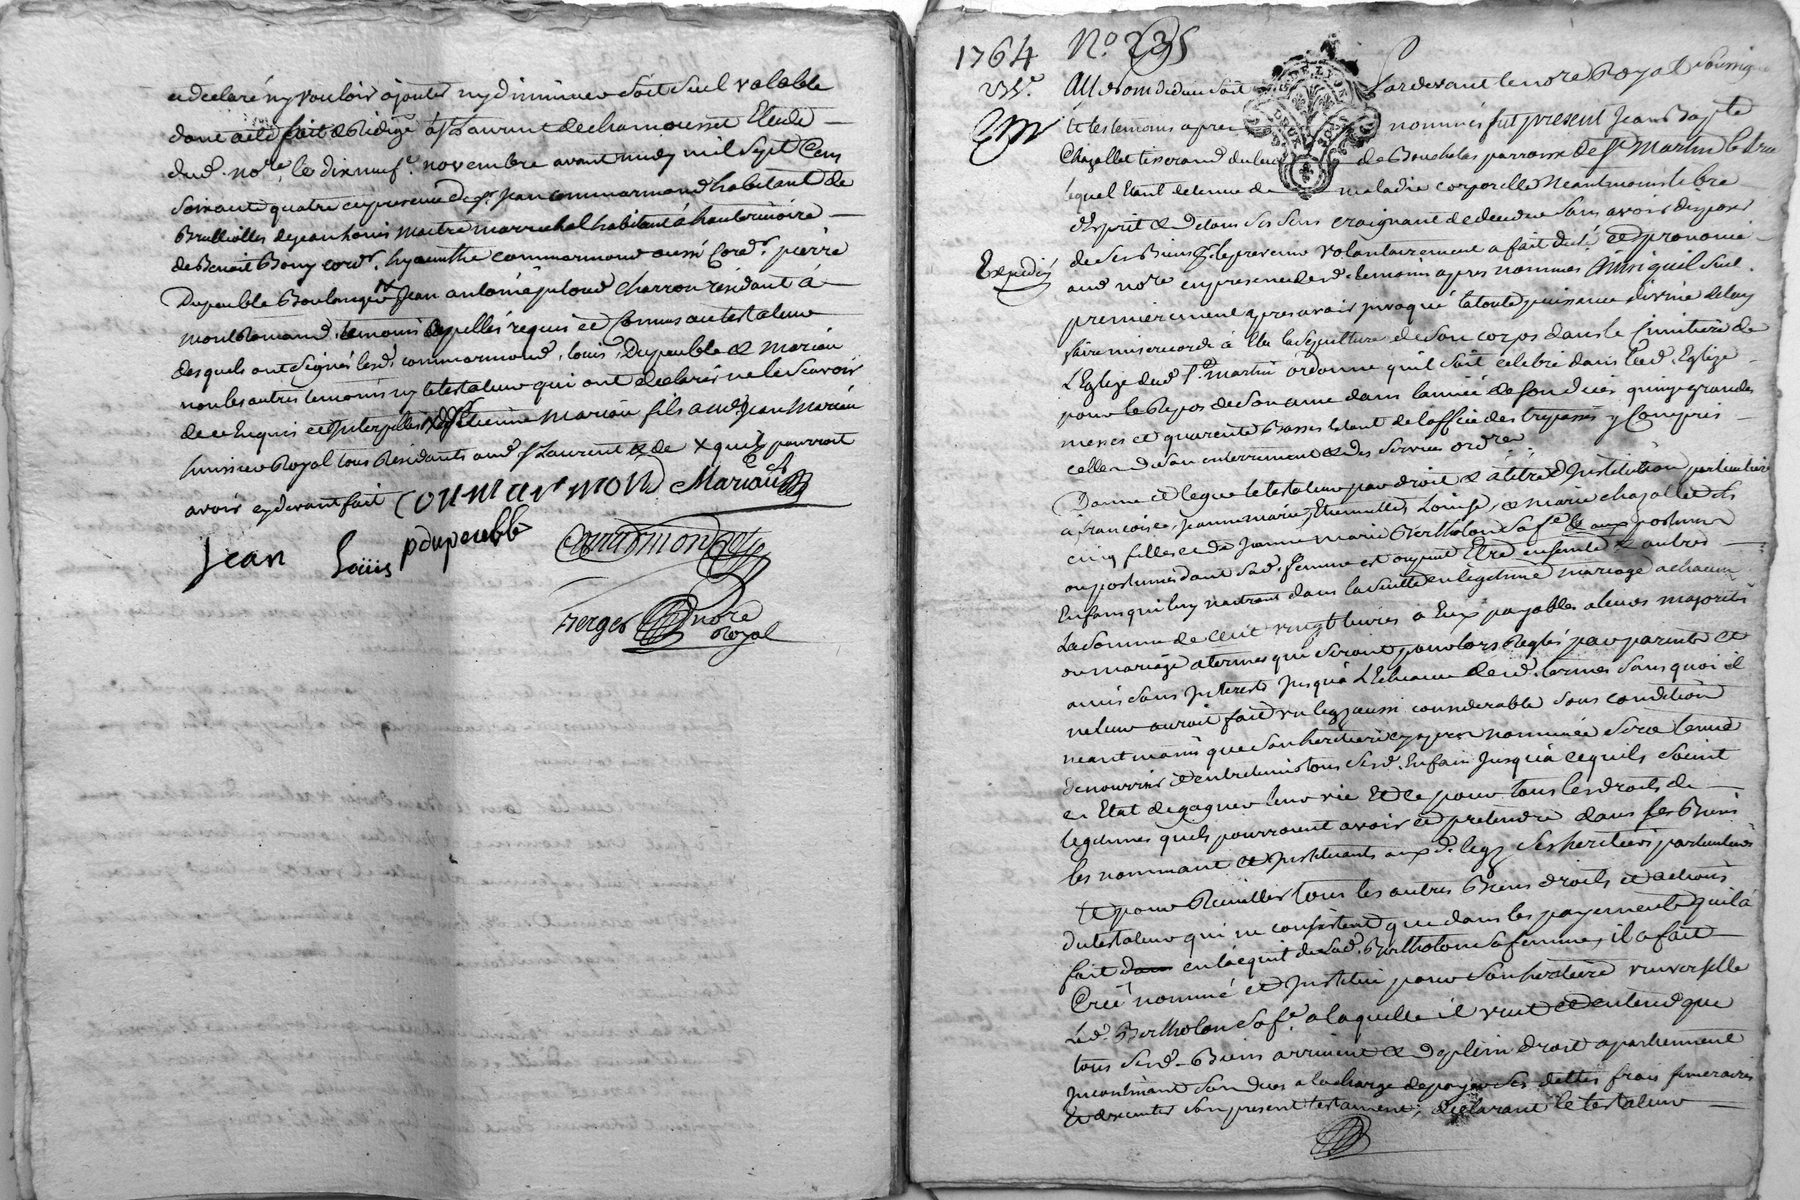 et declaré ny vouloir ajouter ny diminuer soit seul valable
dont acte fait & redigé a St Laurent de chamousset Etude
dud. nore. le dix neufe. novembre avant midy mil sept cens
soixante quatre en presence de sr. Jean commarmond habitant de
Brullioles de jean Louis maitre marechal habitant à hauterivoire
de Benoit Bony cordr. hyacinthe commarmond aussi Cordr. pierre
Dupeuble Boulanger & Jean antoine charron résidant à
montromand temoins appellés requis et connus au testateur
desquels ont signés lesd. commarmond, Louis, Dupeuble & Mariau
non les autres temoins ny le testateur qui ont declarés ne le scavoir
de ce Enquis et Interpellés Etienne Mariau fils aud. Jean Mariau
huissier Royal tous Residants aud. St Laurent & de quilz pourroit
avoir cydevant fait Coumarmond Mariau
Jean Louis pdupeuble Commarmond
Fierger nore
Royal
1764 No. 235
235e. Au nom de dieu soit Pardevant le nore Royal soussigné
Et les temoins apres nommés fut present Jean Bapte
Chazallet tisserand du lieu de Boucholas parroisse de St Martin
lequel Etant detenu de maladie corporelle neantmoins libre
d'Esprit & dans ses sens craignant de deceder sans avoir disposé
Expedié
de ses Biens de presence volontairement a fait dicté et prononcé
aud nore en presence desd. temoins apres nommés Ainsi quil suit.
premierement apres avoir invoqué la toute puissance divine de luy
faire misericorde à Elu la sepulture de son corps dans le Cimitiere de
L'Eglize dud. St. Martin ordonne quil soit celebré dans lad. Eglize
pour le Repos de son ame dans l'année de son deces quinze grandes
messes et quarente Basses Estant de l'office des trepassés y Compris
celles de son enterrement & des services ordre
Donne et legue le testateur par droit & à titre d'Institution particuliere
à francoise, Jeanne marie, Etiennette, Louise, & marie chazallet ses
cinq filles et de Jeanne marie Bertholon sa fe. & aux postume
ou postumes dont sad. femme est ou peut Etre enceinte & autres
Enfans qui luy naitront dans la suitte en legitime mariage a chacun
La somme de cent vingt livres à Eux payables a leurs majorité
ou mariage a termes qui seront pour lors Reglés par parents et
amis sans Interests Jusqu'à L'Echeance desd. termes sans quoi il
ne leur auroit fait un legz aussi considerable sous condition
neantmoins que son heritiere cyapres nommée sera tenue
de nourrir & entretenir tous sesd. Enfans Jusqu'à ce quils soient
en Etat de gagner leur vie Et ce pour tous les droits de
legitimes quels pourroient avoir et pretendre dans ses Biens
les nommant et Instituants aux d. legz ses heritiers particuliers
Et pour Recueillir tous les autres Biens droits et actions
du testateur qui ne consistent que dans les payements quil a
fait dans en l'acquit de sad. Bertholon sa femme, il a fait
Créé nommé et Institué pour son heritiere universelle
lad. Bertholon sa fe. a laquelle il veut et entend que
tous sesd. Biens arrivent & de plein droit apartiennent
Incontinent son deces a la charge de payer ses dettes frais funeraires
Et d'executer son present testament, declarant le testateur